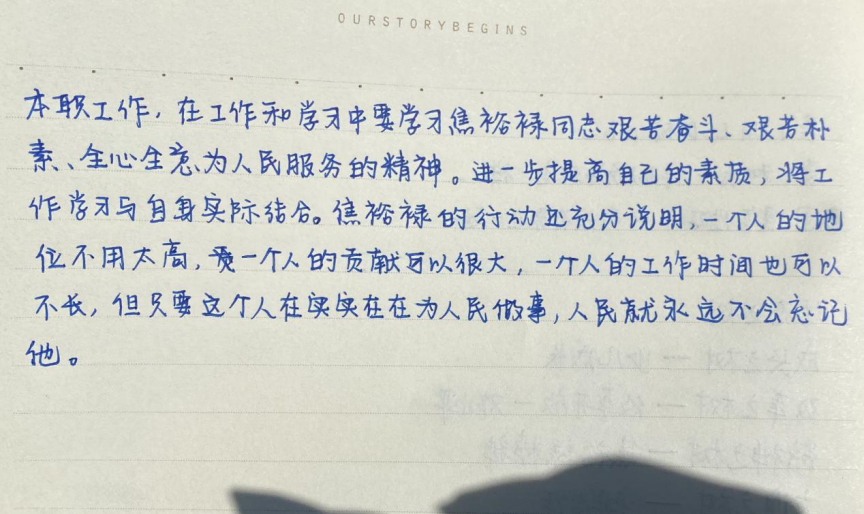 OURSTORYBEGINS
本职工作，在工作和学习中要学习焦裕禄同志艰苦奋斗、艰苦朴
素、全心全意为人民服务的精神。进一步提高自己的素质，将工
作学习与自身实际结合。焦裕禄的行动还充分说明，一个人的地
位不用太高，一个人的贡献可以很大，一个人的工作时间也可以
不长，但只要这个人在实实在在为人民做事，人民就永远不会忘记
他。